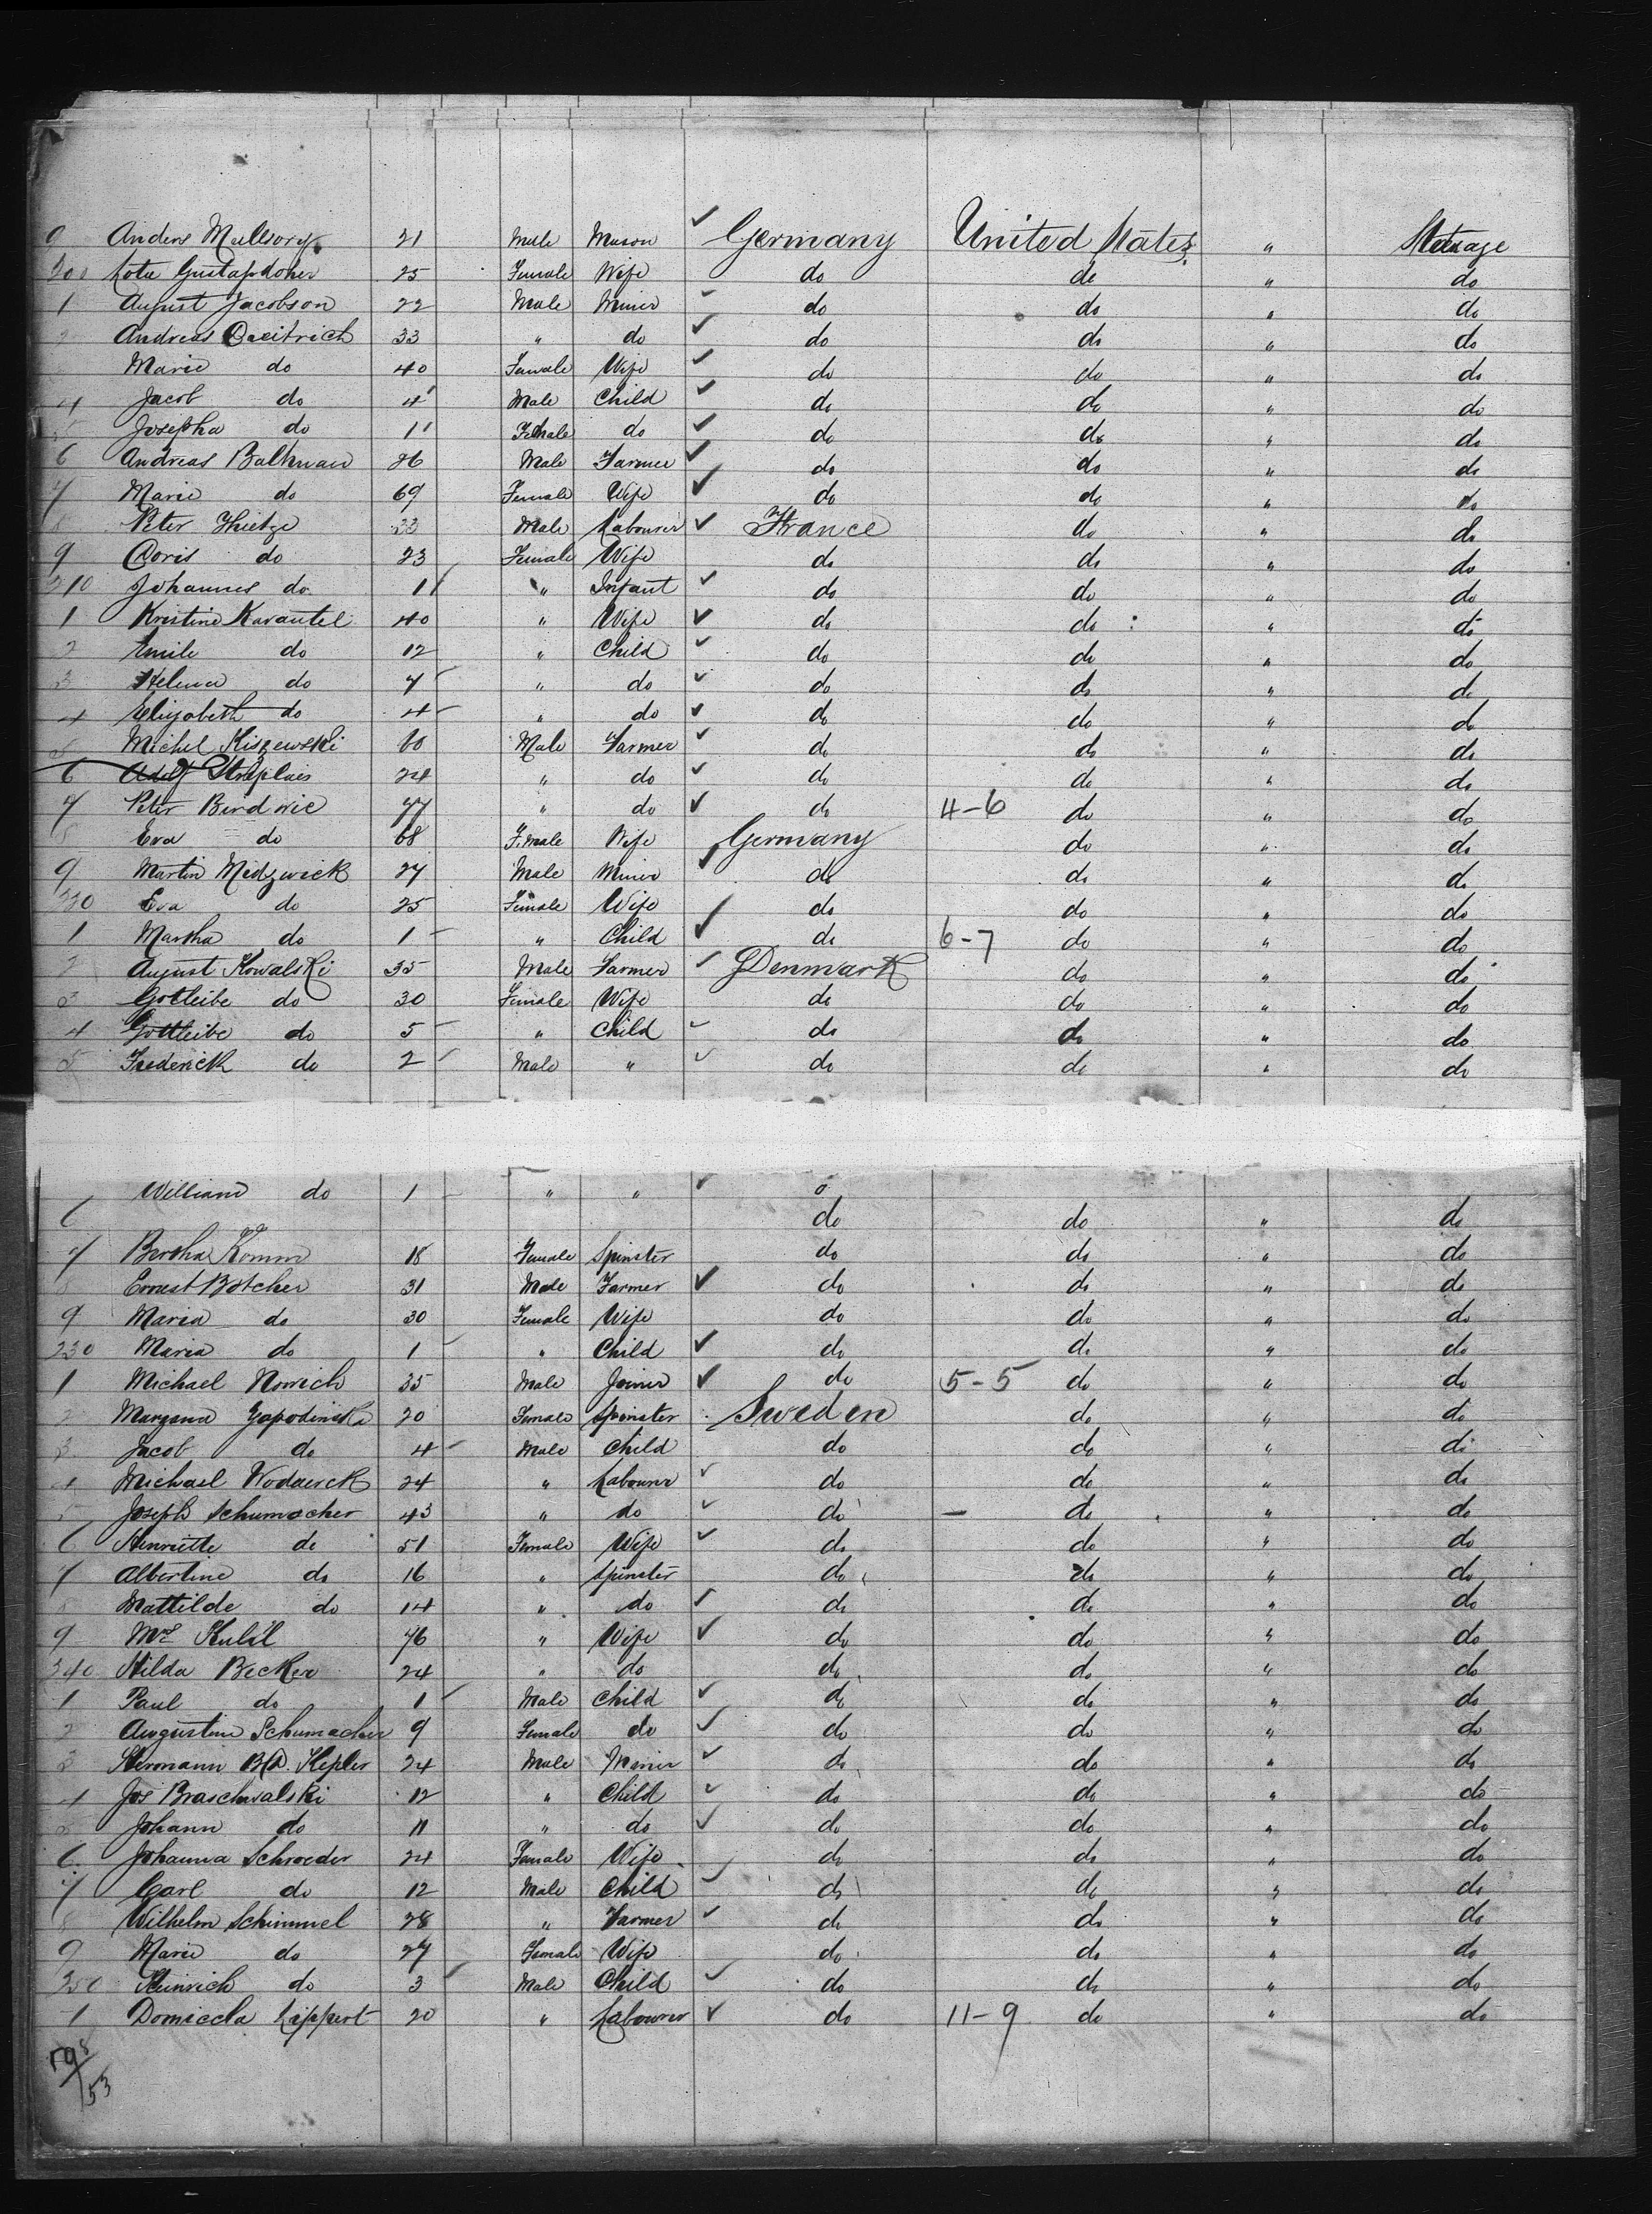 9 Anders Mullsory 21 Male Mason ✓ Germany United States " Steerage
200 Lotu Gustafdoner 25 Female Wife do do " do
1 August Jacobson 22 Male Miner do do " do
2 Andreas Dreitrich 33 " do ✓ do do " do
Marie do 40 Female Wife ✓ do do " do
4 Jacob do 4 Male Child ✓ do do " do
5 Josepha do 1 Female do ✓ do do " do
6 Andreas Balkman 26 Male Farmer ✓ do do " do
7 Marie do 69 Female Wife ✓ do do " do
8 Peter Thietze 33 Male Labourer ✓ France do " do
9 Doris do 23 Female Wife do do " do
210 Johannes do 1 " Infant ✓ do do " do
1 Kristine Karautel 40 " Wife ✓ do do " do
2 Emile do 12 " Child ✓ do do " do
3 Helena do 7 " do ✓ do do " do
4 Elizabeth do 4 " do ✓ do do " do
5 Michel Kiszewski 60 Male Farmer ✓ do do " do
6 Adolf 24 " do ✓ do do " do
7 Peter Birdwie 77 " do ✓ do 4-6 do " do
8 Eva do 68 F.male Wife Germany do " do
9 Martin Midzwick 27 Male Miner ✓ do do " do
220 Eva do 25 Female Wife do do " do
1 Martha do 1 " Child ✓ do 6-7 do " do
2 August Kowalski 35 Male Farmer ✓ Denmark do " do
3 Gotleibe do 30 Female Wife do do " do
4 Gottleibe do 5 " Child ✓ do do " do
5 Frederick do 2 Male " ✓ do do " do
William do 1 " " ✓
6 do do " do
7 Bertha Komm 18 Female Spinster do do " do
8 Ernest Botcher 31 Male Farmer ✓ do do " do
9 Maria do 30 Female Wife do do " do
230 Maria do 1 " Child ✓ do do " do
1 Michael Nowich 35 Male Joiner ✓ do 5-5 do " do
2 Maryana Gapodinska 20 Female Spinster Sweden do " do
3 Jacob do 4 Male Child do do " do
4 Michael Wodaerck 24 " Labourer ✓ do do " do
5 Joseph Schumacher 43 " do ✓ do - do " do
6 Henriette do 51 Female Wife ✓ do do " do
7 Albertine do 16 " Spinster do do " do
8 Mattilde do 14 " do ✓ do do " do
9 Mrs Kulil 76 " Wife ✓ do do " do
240 Hilda Becker 24 " do do do " do
1 Paul do 1 Male Child ✓ do do " do
2 Augustine Schumacher 9 Female do ✓ do do " do
3 Hermann Kepler 24 Male Miner ✓ do do " do
4 Jos Braschwalski 12 " Child ✓ do do " do
5 Johann do 11 " do ✓ do do " do
6 Johanna Schroeder 24 Female Wife do do " do
7 Carl do 12 Male Child ✓ do do " do
8 Wilhelm Schimmel 28 " Farmer ✓ do do " do
9 Marie do 27 Female Wife do do " do
250 Heinrich do 3 Male Child ✓ do do " do
1 Domicela Lippert 20 " Labourer ✓ do 11-9 do " do
198/53